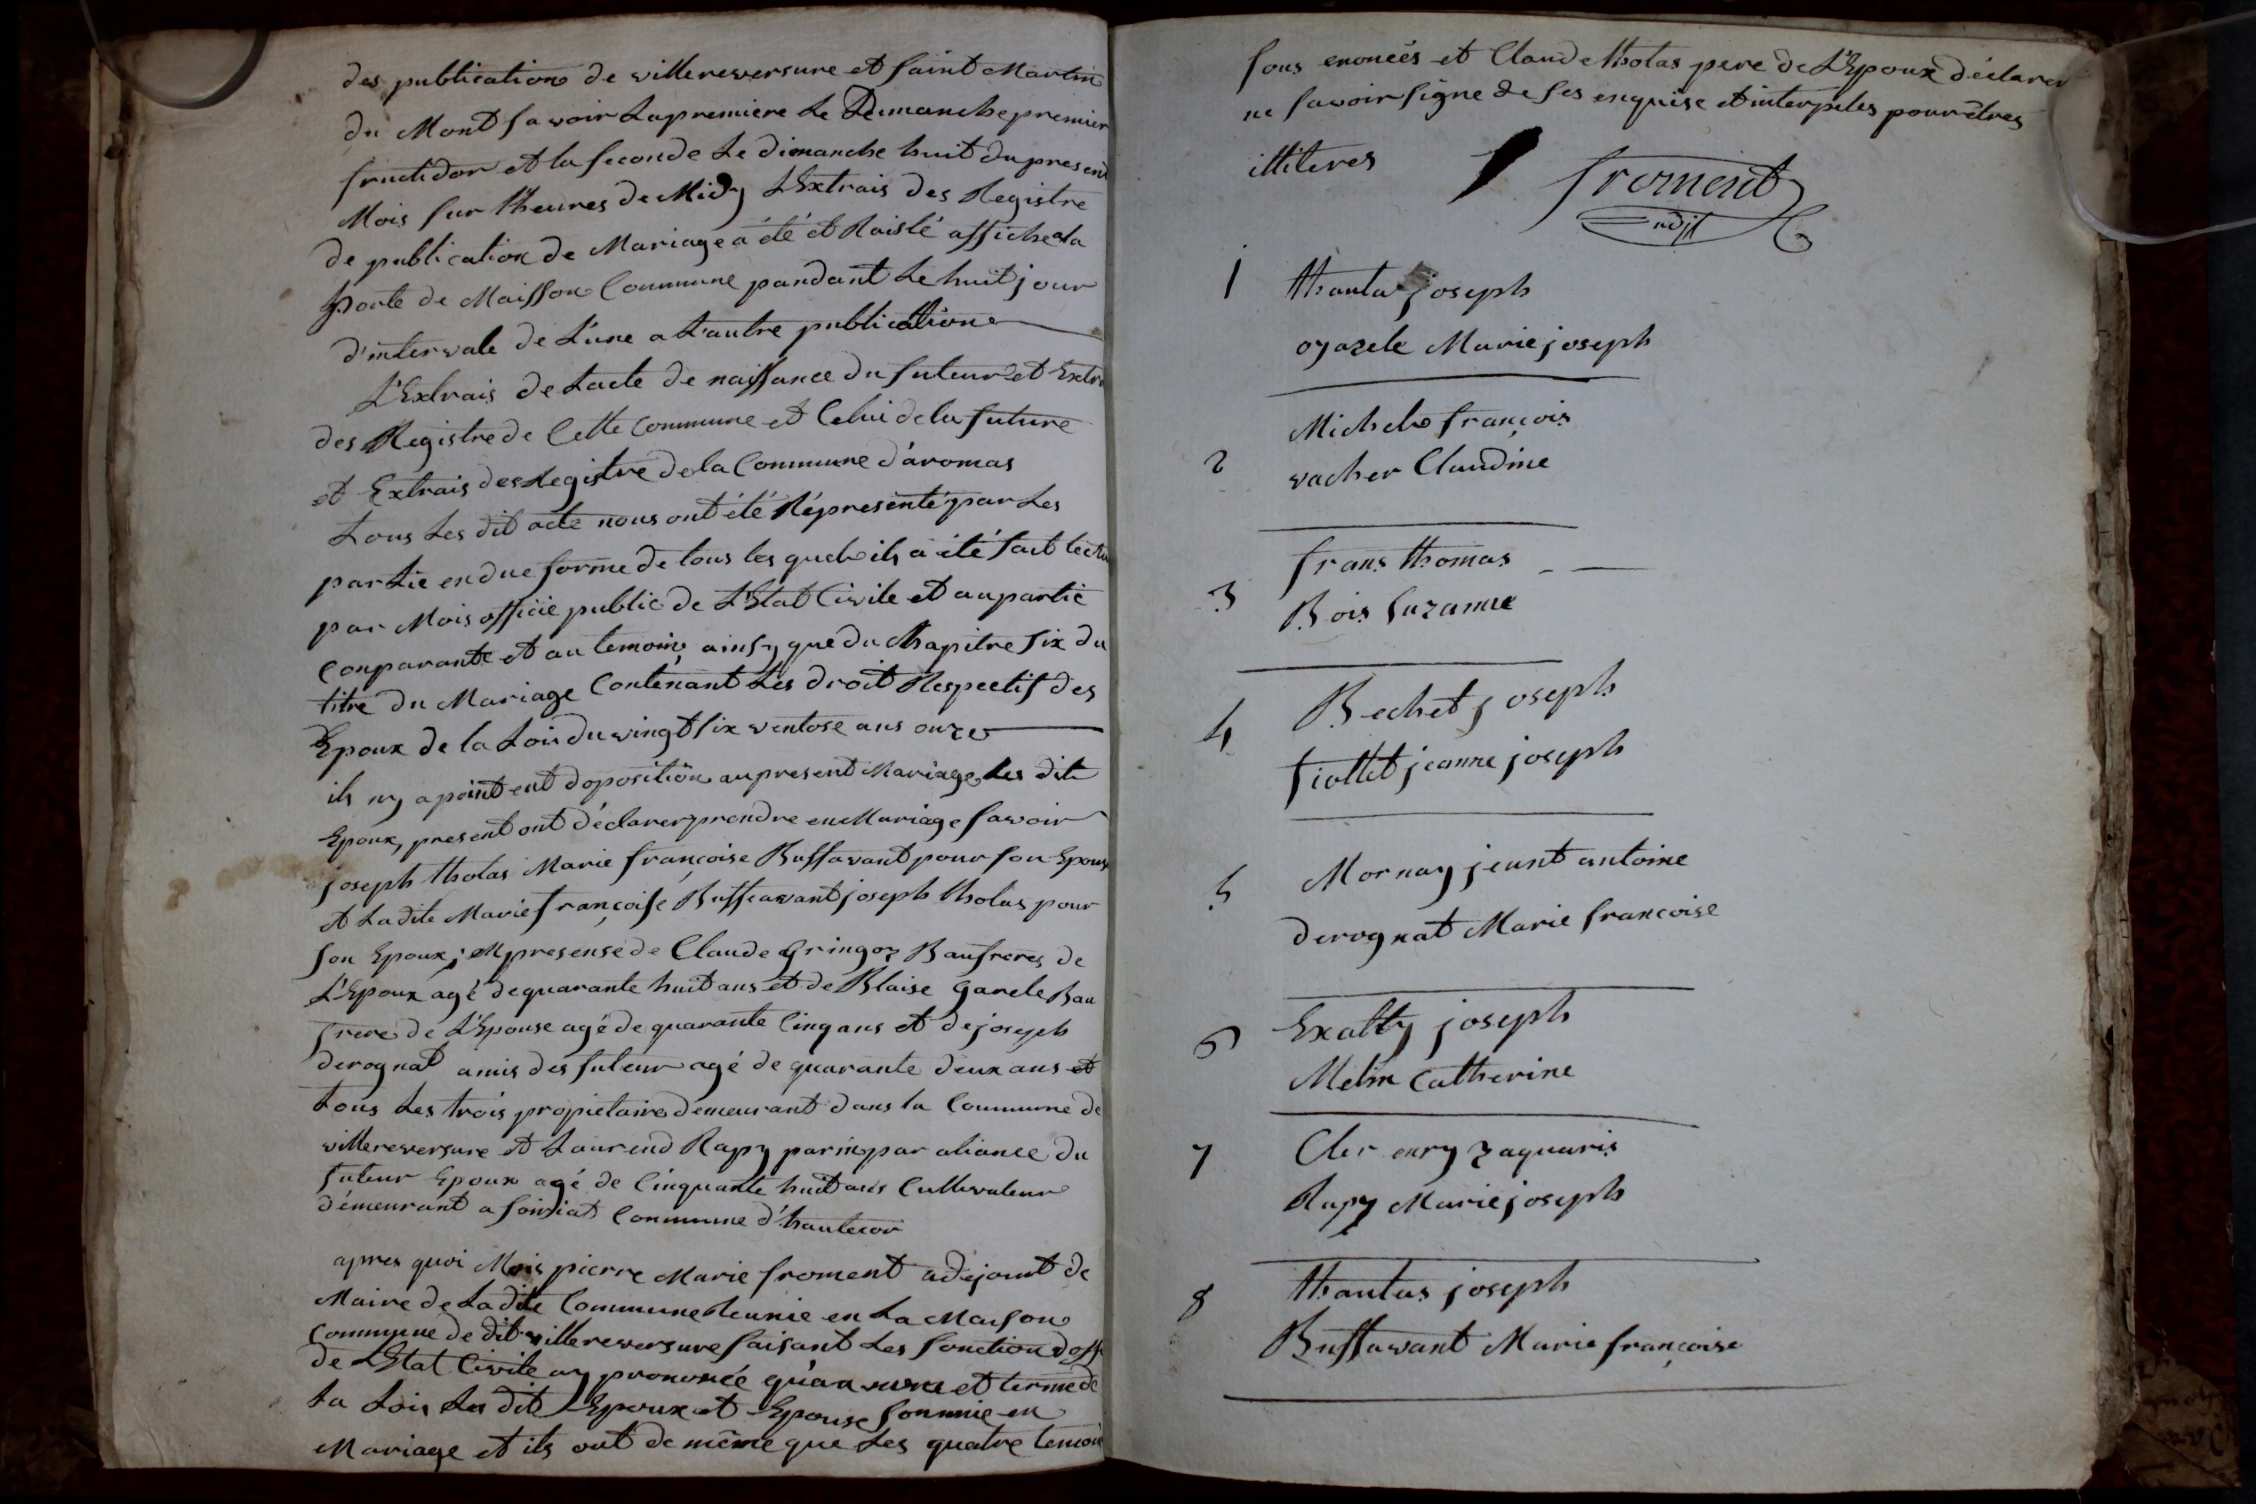 des publication de villereversure et saint Martin
du Mont savoir La premiere Le Dimanche premier
fructidor et la seconde Le dimanche huit du present
Mois sur l'heures de Midy L'Extrais des Registre
de publication de Mariage a été et Raislé affiche a la
porte de Maisson Commune pandant Le huit jour
d'intervale de L'une a L'autre publication
L'Extrais de Lacte de naissance du futeur et Extr
des Registre de Cette Commune et Celui de la future
et Extrais des Registre de la Commune d'aromas
Tous Les dit acte nous ont été Réprésenté par Les
partie en due forme de tous les quels ils a été fait lectu
par Mois officie public de L'Etat Civile et au partie
Conparante et au temoins ainsy que du Chapitre six du
titre du Mariage Contenant Les droit Respectif des
Epoux de la Lois du vingt six ventose ans onze
ils ny a point eut d'oposition au present Mariage Les dite
Epoux, present ont déclarer prendre en Mariage savoir
joseph tholas Marie françoise Buffavant pour son Epouse
et La dite Marie françoise Buffavant joseph tholas pour
son Epoux; En presense de Claude Gringoz Baufreres de
L'Epoux agé de quarante huit ans et de Blaise Garele Bau
frere de L'Epouse agé de quarante Cinq ans et de joseph
derognat amis des futeur agé de quarante deux ans et
tous Les trois propietaire demeurant dans la Commune de
villereversure et Laurend Rapy parin par aliance du
futeur Epoux agé de Cinquante huit ans Cultivateur
démeurant a soisiat Commune d'hautecor
apres quoi Mois pierre Marie froment adejoint de
Maire de La dite Commune Reunie en La Maison
Commune de dit villereversure faisant Les fonction d'offi
de L'Etat Civile ay prononcé qu'au et terme de
La Lois Les dit Epoux et Epouse sonunie en
Mariage et ils ont de même que Les quatre temoin
sous enoncés et Claude tholas pere de L'Epoux déclarer
ne savoir signe de ses enquise et interpeles pour êtres
illiteres froment
adjt
1 thautas joseph
oyazele Marie joseph
Michelo françois
2 vacher Claudine
frans thomas
3 Bois Suzanne
Bechet joseph
4 fiollet jeanne joseph
5 Mornay jeant antoine
derognat Marie francoise
Exalty joseph
6 Melin Catherine
7 Cler enry zaquaris
Rapy Marie joseph
8 thautas joseph
Buffavant Marie françoise